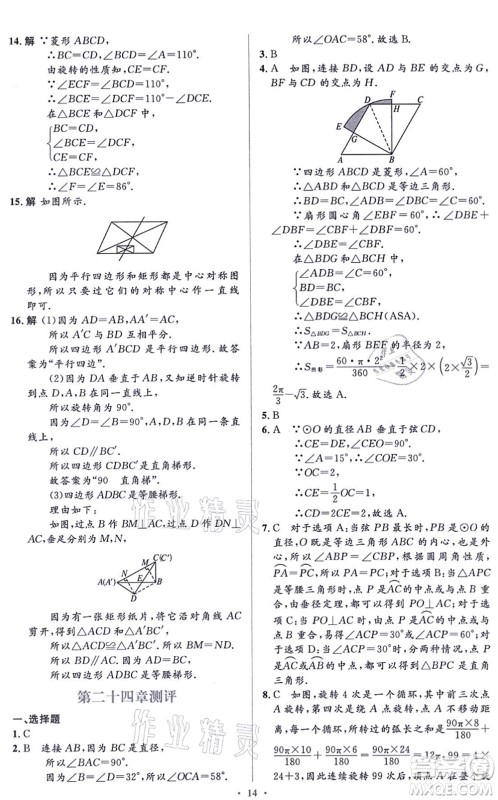 14.解 ∵菱形 ABCD,
∴BC=CD,∠BCD=∠A=110°.
由旋转的性质知,CE=CF.
∵∠ECF=∠BCD=110°,
∴∠BCE=∠DCF=110°-∠DCE.
在△BCE 与△DCF 中,
BC=CD,
∠BCE=∠DCF,
CE=CF,
∴△BCE≌△DCF,
∴∠F=∠E=86°.
15.解 如图所示.
因为平行四边形和矩形都是中心对称图
形,所以只要过它们的对称中心作一直线
即可.
16.解 (1)因为 AD=AB,AA′=AC,
所以 A′C 与 BD 互相平分.
所以四边形 ABCD 是平行四边形.故答
案为“平行四边”.
(2)因为 DA 垂直于 AB,又逆时针旋转
到点 D,C,B 在同一直线上,
所以旋转角为 90°.
因为∠D=∠B=90°,A,D,B 在同一条直
线上,
所以 CD∥BC′.
所以四边形 CDBC′是直角梯形.
故答案为“90 直角梯”.
(3)四边形 ADBC 是等腰梯形.
如图,过点 B 作 BM⊥AC,过点 D 作
DN⊥AC,垂足分别为点 M,N,
C(C′)
M
A(A′)
E
B
N
D
因为有一张矩形纸片,将矩形纸片沿对角线 AC
剪开,得到△ACD 和△A′BC′.
所以△ACD≌△A′BC′.所以 BM=ND.
所以 BD∥AC.
因为 AD=BC,
所以四边形 ADBC 是等腰梯形.
第二十四章测评
一、选择题
1.C
2.B 连接 OA,因为 OA=OC=OB,
因为∠B=∠OAB=32°,所以∠OCA=58°.
所以∠OAC=58°.故选 B.
3.B
4.A 如图,连接 BD,设 AD 与 BE 的交点为 G,
BF 与 CD 的交点为 H.
F
D
C
E
H
G
A
B
∵四边形 ABCD 是菱形,∠A=60°,
∴△ABD 和△BCD 是等边三角形.
∵扇形圆心角∠EBF=60°,
∴∠DBC=∠CBF+∠DBF=∠EBD+
∠DBF=∠EBF=60°.
∴∠CBF=∠EBD.
在△DBG 和△CBH 中,
∠ADB=∠C=60°,
DB=BC,
∠EBD=∠CBF,
∴△DBG≌△CBH(ASA).
∴S△BDG=S△BCH.
∵AB=2,扇形 BEF 的半径为 2,
∴S阴影=60·π·2²/360-1/2×2×(2×√3/2)=
2π/3-√3.故选 A.
5.B
6.A ∵⊙O 的直径 AB 垂直于弦 CD,
∴CE=DE,∠CEO=90°.
∵∠A=15°,∴∠COE=30°.
∵OC=2,
∴CE=1/2OC=1.
∴CD=2CE=2.
7.C 对于选项 A:当弦 PB 最长时,PB 是⊙O 的
直径,点 O 既是等边三角形 ABC 的外心,也是
内心,所以∠ABP=∠CBP.根据圆周角性质,
PA=PC,所以 PA=PC;对于选项 B:当△APC
是等腰三角形时,点 P 是AC的中点或与点 B
重合,由垂径定理,得 PO⊥AC;对于选项 C:
当 PO⊥AC,由点 P 是AC的中点或与点 B
重合,所以∠ACP=30°或∠ACP=60°;对于
选项 D:当∠ACP=30°时,点 P 是AC的中点
或AB的中点,都可以得到△BPC 是直角
三角形.
8.C 如图,旋转 4 次是一个循环,其中前三次点
A 旋转,第四次以点 A 为旋转中心,点 A 不
动,一个循环,所转过的弧长之和为90π×8/180+
90π×10/180+90π×6/180=12π,99÷4=
24+3,因此连续旋转 99 次后,与旋转
· 14 ·
作业精灵
作业精灵
答案圈
MXQE.COM